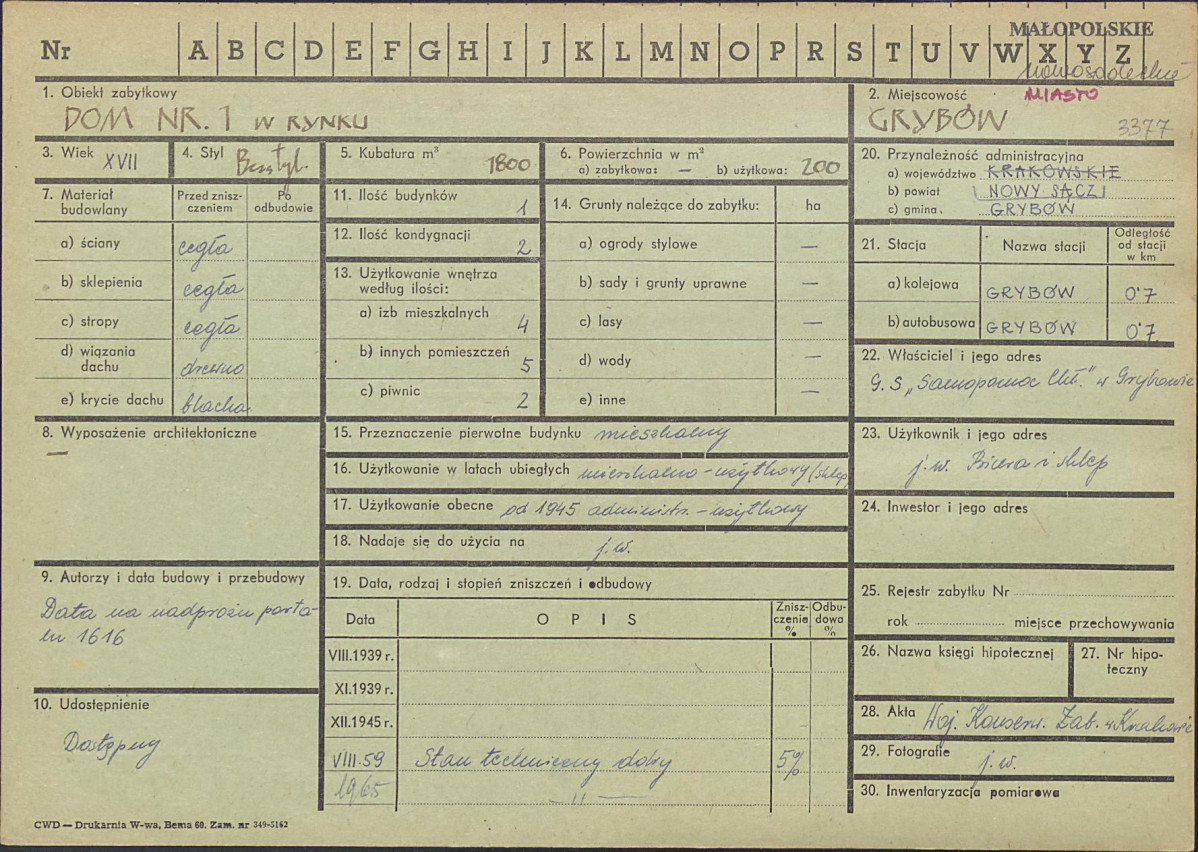 MAŁOPOLSKIE
Nr A B C D E F G H I J K L M N O P R S T U V W X Y Z
nowosądeckie
1. Obiekt zabytkowy
DOM NR. 1 W RYNKU
2. Miejscowość MIASTO
GRYBÓW 3377
3. Wiek XVII
4. Styl Bezstyl.
5. Kubatura m³ 1800
6. Powierzchnia w m²
a) zabytkowa: — b) użytkowa: 200
7. Materiał budowlany
Przed zniszczeniem
Po odbudowie
a) ściany cegła
b) sklepienia cegła
c) stropy cegła
d) wiązania dachu drewno
e) krycie dachu blacha
11. Ilość budynków 1
12. Ilość kondygnacji 2
13. Użytkowanie wnętrza
według ilości:
a) izb mieszkalnych 4
b) innych pomieszczeń 5
c) piwnic 2
14. Grunty należące do zabytku: ha
a) ogrody stylowe —
b) sady i grunty uprawne —
c) lasy —
d) wody —
e) inne —
20. Przynależność administracyjna
a) województwo KRAKOWSKIE
b) powiat NOWY SĄCZ
c) gmina GRYBÓW
21. Stacja
Nazwa stacji
Odległość od stacji w km
a) kolejowa GRYBÓW 0'7
b) autobusowa GRYBÓW 0'7
22. Właściciel i jego adres
G. S „Samopomoc Chł." w Grybowie
8. Wyposażenie architektoniczne
—
15. Przeznaczenie pierwotne budynku mieszkalny
16. Użytkowanie w latach ubiegłych mieszkalno-użytkowy (sklep)
17. Użytkowanie obecne od 1945 administr. - użytkowy
18. Nadaje się do użycia na j.w.
23. Użytkownik i jego adres
j.w. Biura i sklep
24. Inwestor i jego adres
9. Autorzy i data budowy i przebudowy
Data na nadprożu porta-
lu 1616
10. Udostępnienie
Dostępny
19. Data, rodzaj i stopień zniszczeń i odbudowy
Data OPIS Zniszczenie % Odbudowa %
VIII.1939 r.
XI.1939 r.
XII.1945 r.
VIII-59 Stan techniczny dobry 5%
1965 —"—
25. Rejestr zabytku Nr
rok miejsce przechowywania
26. Nazwa księgi hipotecznej
27. Nr hipoteczny
28. Akta Woj. Konserw. Zab. w Krakowie
29. Fotografie j.w.
30. Inwentaryzacja pomiarowa
CWD — Drukarnia W-wa, Bema 60. Zam. nr 349-5162